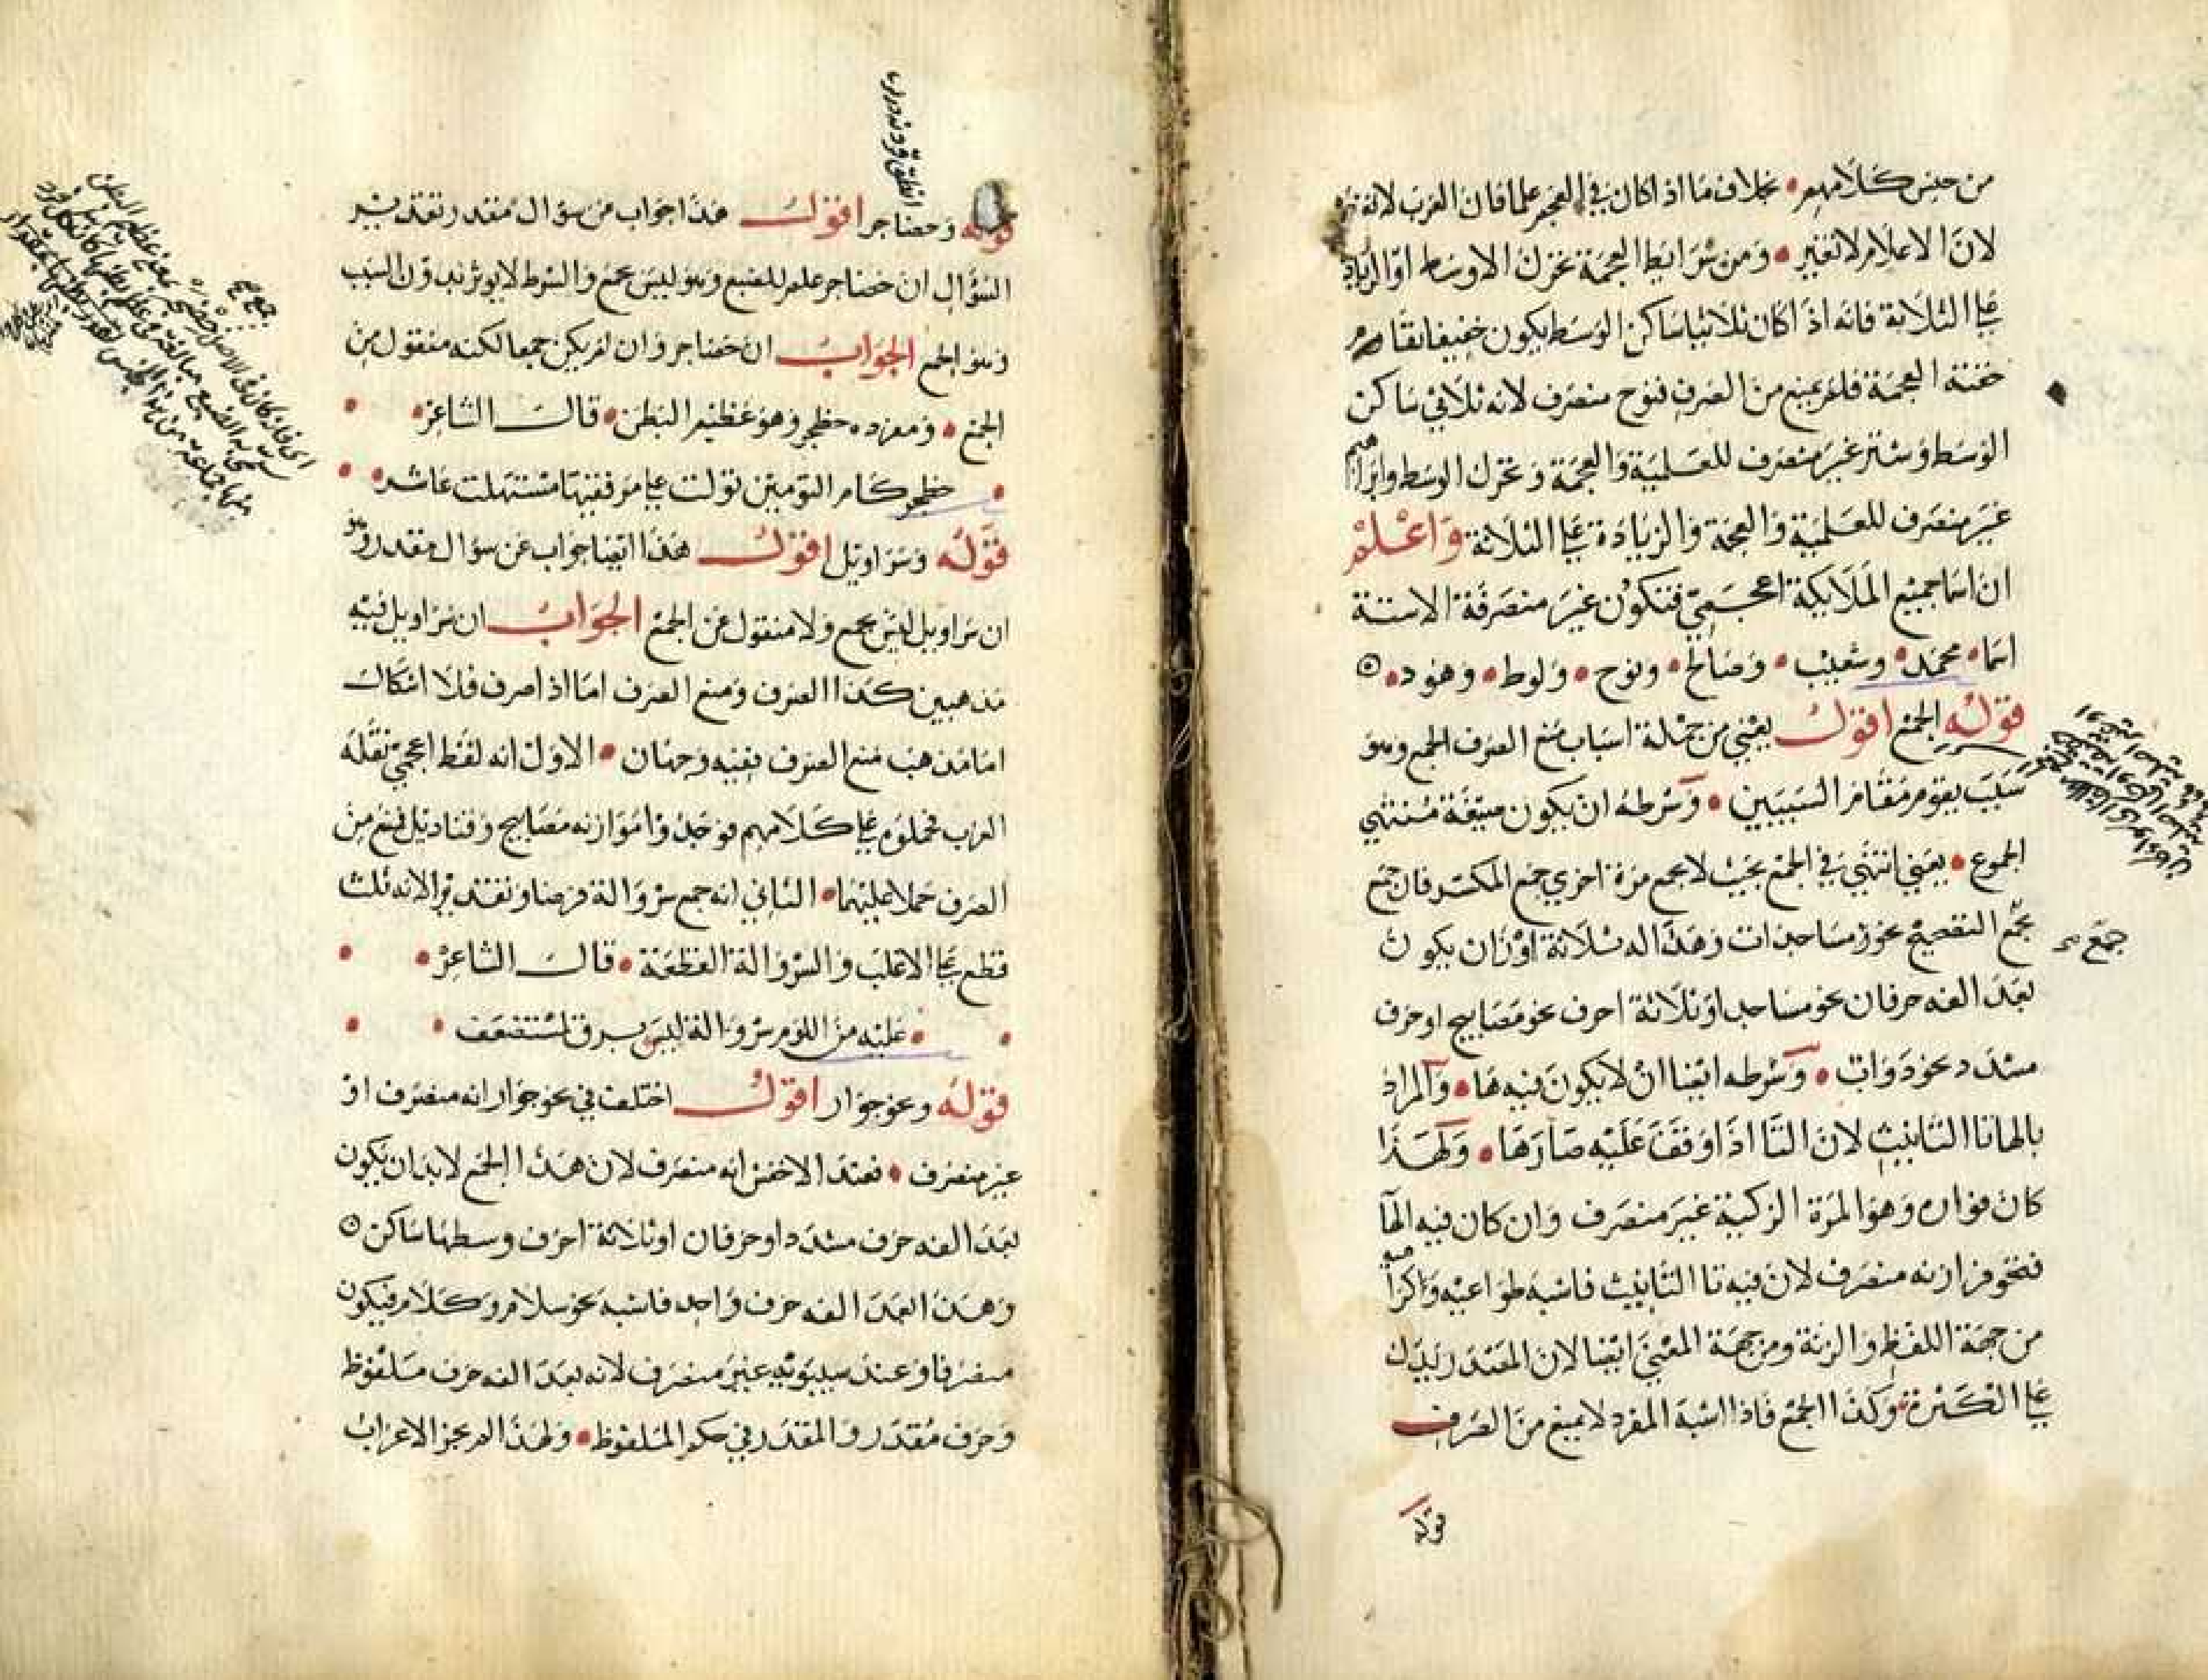 من جنس كلامهم • بخلاف ما اذا كان في العجم علما فان العرب لانه
لان الاعلام لا تغير • ومن شرايط العجمة تحرك الاوسط او الزيادة
على الثلاثة فانه اذا كان ثلاثيا ساكن الوسط يكون خفيفا
خفته العجمة فلم يمنع من الصرف فنوح منصرف لانه ثلاثي ساكن
الوسط وشتر غير منصرف للعلمية والعجمة وتحرك الوسط وابراهيم
غير منصرف للعلمية والعجمة والزيادة على الثلاثة واعلم
ان اسما جميع الملايكة اعجمي فتكون غير منصرفة الا ستة
اسما • محمد • وشعيب • وصالح • ونوح • ولوط • وهود •
قوله الجمع اقول يعني من جملة اسباب منع الصرف الجمع وهو
سبب يقوم مقام السببين • وشرطه ان يكون صيغة منتهي
الجموع • يعني انتهي في الجمع بحيث لا يجمع مرة اخري جمع المكسر فان جمع
بجمع التصحيح نحو مساجدات وهذا له ثلاثة اوزان يكون
جمع
بعد الفه حرفان نحو مساجد او ثلاثة احرف نحو مصابيح او حرف
مشدد نحو دواب • وشرطه ايضا ان لا يكون فيه ها • والمراد
بالها تا التانيث لان التا اذا وقف عليه صار ها • ولهذا
كان فواره وهو المرة الزكية غير منصرف وان كان فيه الها
فنحو فرازنه منصرف لان فيه تا التانيث فاشبه طواعيه وكراهية
من جهة اللفظ والزنة ومن جهة المعني ايضا لان المصدر يدل
على الكثرة وكذا الجمع فاذا اشبه المفرد لا يمنع من الصرف
قوله
قوله وحضاجر اقول هذا جواب من سؤال مقدر تقدير
السؤال ان حضاجر علم للضبع وهو ليس بجمع والشرط لا يوثر بدون السبب
وهو الجمع الجواب ان حضاجر وان لم يكن جمعا لكنه منقول من
الجمع • ومفرده حظجر وهو عظيم البطن • قال الشاعر •
• حظجر كام التومين توكت على مرفقيها مستهلت عاشر •
قوله وسراويل اقول هذا ايضا جواب عن سؤال مقدر وهو
ان سراويل ليس بجمع ولا منقول عن الجمع الجواب ان سراويل فيه
مذهبين كذا الصرف ومنع الصرف اما اذا صرف فلا اشكال
اما مذهب منع الصرف ففيه وجهان • الاول انه لفظ اعجمي نقله
العرب فحملوه على كلامهم فوجدوا موازنه مصابيح وقناديل فمنع من
الصرف حملا عليهما • الثاني انه جمع سروالة فرضا وتقديرا لانه ثلث
قطع على الاغلب والسروالة القطعة • قال الشاعر •
• عليه من اللوم سروالة ليس يرق لمستضعف •
قوله ونحو جوار اقول اختلف في نحو جوار انه منصرف او
غير منصرف • فعند الاخفش انه منصرف لان هذا الجمع لا بد ان يكون
بعد الفه حرف مشدد او حرفان او ثلاثة احرف وسطها ساكن
وهذا بعد الفه حرف واحد فاشبه نحو سلام وكلام فيكون
منصرفا وعند سيبويه غير منصرف لانه بعد الفه حرف ملفوظ
وحرف مقدر والمقدر في حكم الملفوظ • ولهذا لم يجز الاعراب